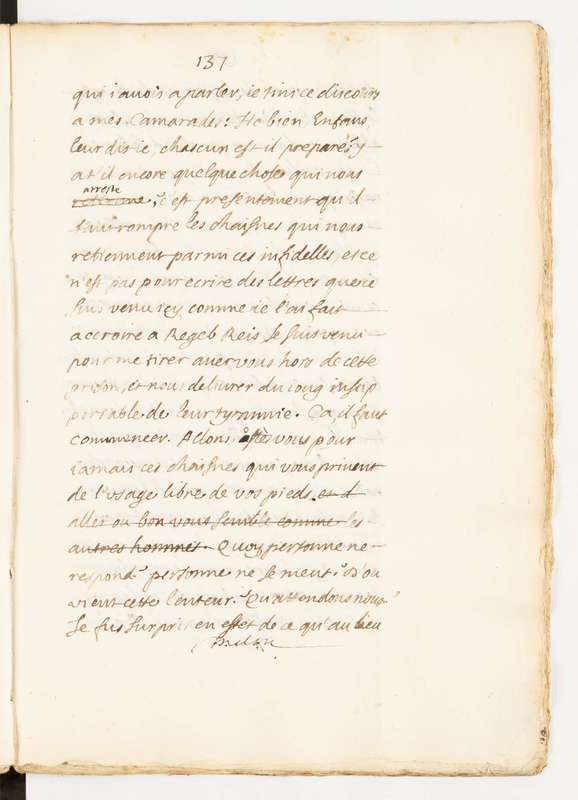 137
qui i'avois a parler, ie tins ce discours
a mes Camarades: Hé bien Enfans
leur dis ie, chascun est il preparé? y
a t'il encore quelque chose qui nous
arreste
c'est presentement qu'il
faut rompre les chaisnes qui nous
retiennent parmi ces infidelles, et ce
n'est pas pour ecrire des lettres que ie
suis venu icy, comme ie l'ai fait
accroire a Regeb Reis Je suis venu
pour me tirer avec vous hors de cette
prison, et nous delivrer du ioug insup
portable de leur tyrannie. Ca, il faut
commencer. Allons, ostés vous pour
iamais ces chaisnes qui vous privent
de l'usage libre de vos pieds. et d
aller ou bon vous semble comme les
autres hommes. Quoy personne ne
respond? personne ne se meut? D'ou
vient cette lenteur? Qu'attendons nous?
Je fus surpris en effet de ce qu'au lieu